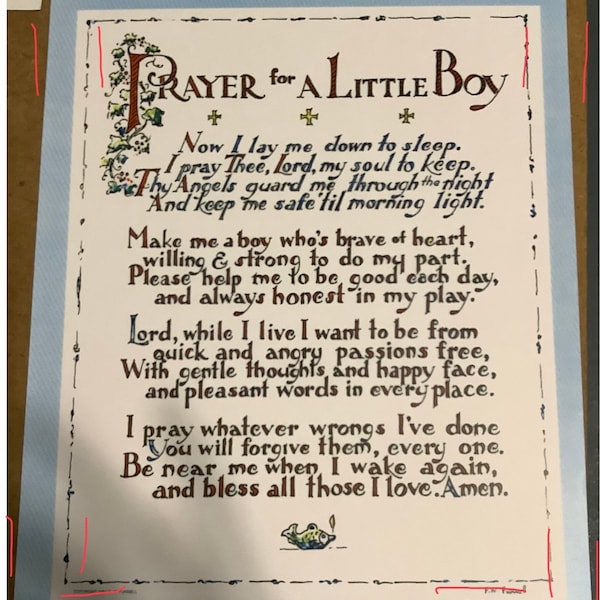 PRAYER for A LITTLE BOY
Now I lay me down to sleep.
I pray Thee, Lord, my soul to keep.
Thy Angels guard me through the night
And keep me safe 'til morning light.
Make me a boy who's brave of heart,
willing & strong to do my part.
Please help me to be good each day,
and always honest in my play.
Lord, while I live I want to be from
quick and angry passions free,
With gentle thoughts and happy face,
and pleasant words in every place.
I pray whatever wrongs I've done
You will forgive them, every one.
Be near me when I wake again,
and bless all those I love. Amen.